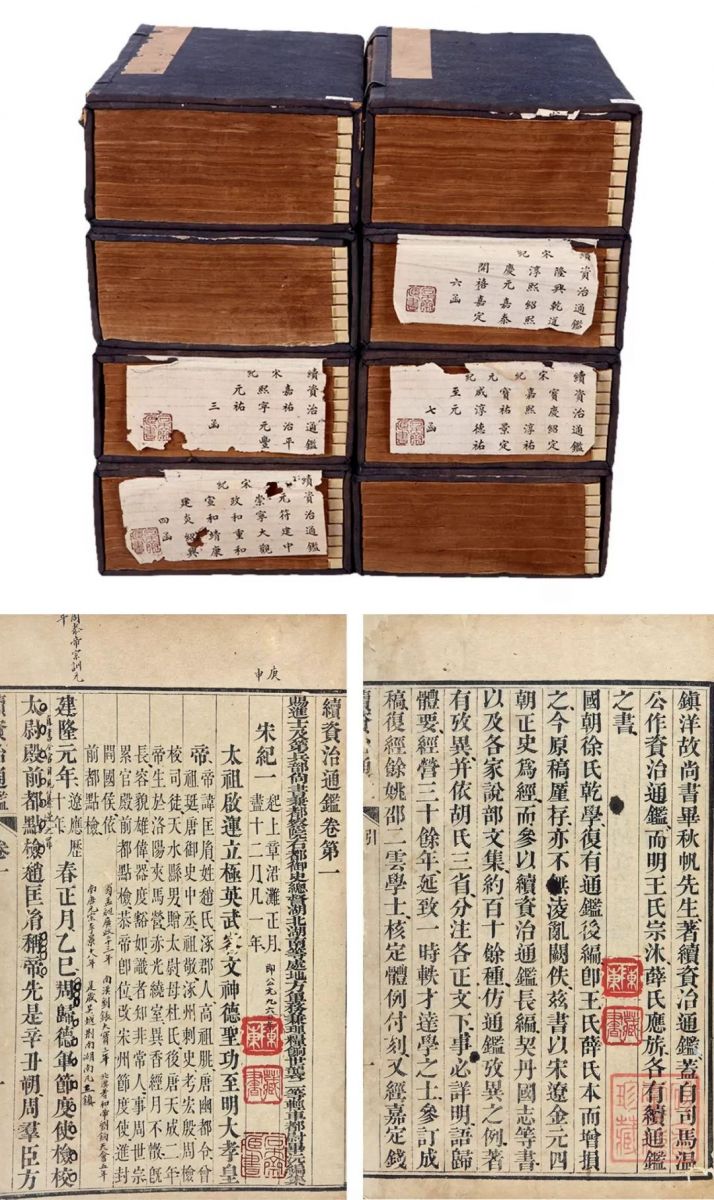 續資治通鑑
宋紀
隆興乾道
淳熙紹熙
慶元嘉泰
開禧嘉定
六函
續資治通鑑
宋紀
嘉祐治平
熙寧元豐
元祐
三函
續資治通鑑
宋紀 元紀
寶慶紹定
嘉熙淳祐
寶祐景定
咸淳德祐
至元
七函
續資治通鑑
宋紀
元符建中
崇寧大觀
政和重和
宣和靖康
建炎紹興
四函
鎮洋故尚書畢秋帆先生著續資治通鑑蓋自司馬溫
公作資治通鑑而明王氏宗沐薛氏應旂各有續通鑑
之書
國朝徐氏乾學復有通鑑後編卽王氏薛氏本而增損
之今原稿厪存亦不無淩亂闕佚兹書以宋遼金元四
朝正史爲經而參以續資治通鑑長編契丹國志等書
以及各家說部文集約百十餘種仿通鑑攷異之例著
有攷異并依胡氏三省分注各正文下事必詳明語歸
體要經營三十餘年延致一時軼才達學之士參訂成
稿復經餘姚邵二雲學士核定體例付刻又經嘉定錢
引
珍藏
藏書
續資治通鑑卷第一
宋紀一
起上章涒灘正月
盡十二月凡一年
庚申
卽公元九六
太祖啟運立極英武文神德聖功至明大孝皇
帝
帝諱匡胤姓趙氏涿郡人高祖朓唐幽都令曾
祖珽唐御史中丞祖敬涿州刺史考宏殷周檢
校司徒天水縣男贈太尉母杜氏後唐天成二年
帝生於洛陽夾馬營赤光繞室異香經月不散旣
長容貌雄偉器度豁如識者知非常人事周世宗
累官殿前都點檢恭帝卽位改宋州節度使進封
開國侯依
前都點檢
建隆元年
遼應歷
十年
春正月乙巳周歸德軍節度使檢校
太尉殿前都點檢趙匡胤稱帝先是辛丑朔周羣臣方
續資治通鑑
卷一
一